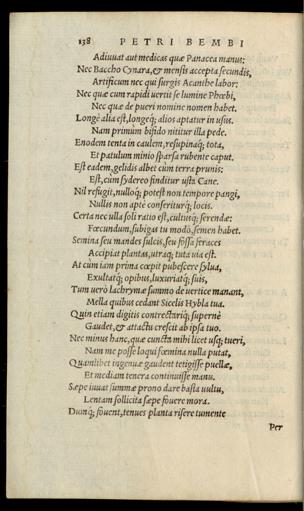 138 PETRI BEMBI
Adiuuat aut medicas quæ Panacea manus:
Nec Baccho Cynara, & mensis accepta secundis,
Artificum nec qui surgis Acanthe labor:
Nec quæ cum rapidi uertit se lumine Phœbi,
Nec quæ de pueri nomine nomen habet.
Longè alia est, longeq; alios aptatur in usus.
Nam primum bifido nititur illa pede.
Enodem tenta in caulem, resupinaq; tota,
Et patulum minio sparsa rubente caput.
Est eadem, gelidis albet cùm terra pruinis:
Est, cùm sydereo finditur usta Cane.
Nil refugit, nulloq; potest non tempore pangi,
Nullis non aptè conseriturq; locis.
Certa nec ulla soli ratio est, cultusq; serendæ:
Fœcundum, subigas tu modò, semen habet.
Semina seu mandes sulcis, seu fossa feraces
Accipiat plantas, utraq; tuta uia est.
At cùm iam prima cœpit pubescere sylua,
Exultatq; opibus, luxuriatq; suis,
Tum uerò lachrymæ summo de uertice manant,
Mella quibus cedant Sicelis Hybla tua.
Quin etiam digitis contrectariq; supernè
Gaudet, & attactu crescit ab ipso tuo.
Nec minus hanc, quæ cuncta mihi licet usq; tueri,
Nam me posse loqui fœmina nulla putat,
Quamlibet ingenuæ gaudent tetigisse puellæ,
Et mediam tenera continuisse manu.
Sæpe iuuat summæ prono dare basia uultu,
Lentam sollicita sæpe fouere mora.
Dumq; fouent, tenues planta risere tumente
Per